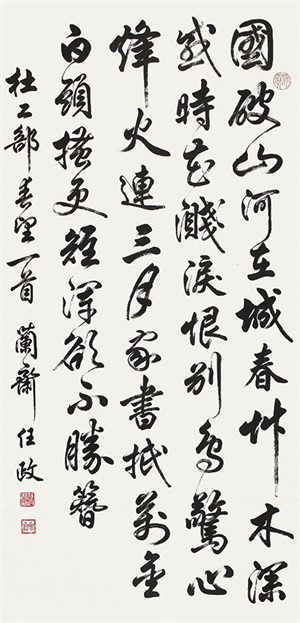 國破山河在城春草木深
感時花濺淚恨別鳥驚心
烽火連三月家書抵萬金
白頭搔更短渾欲不勝簪
杜工部春望一首 蘭齋 任政